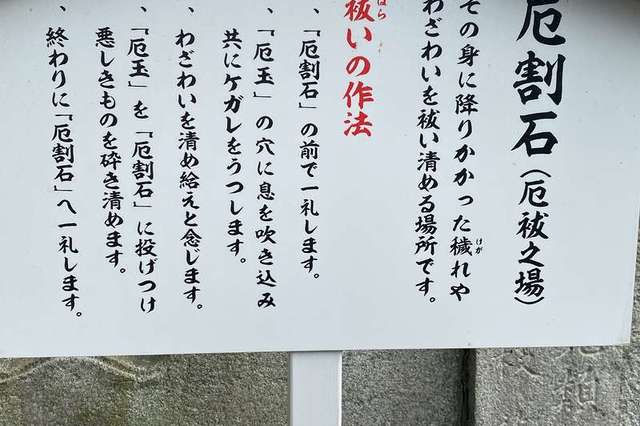 厄割石(厄祓之場)
その身に降りかかった穢れや
けが
わざわいを祓い清める場所です。
祓いの作法
はら
、「厄割石」の前で一礼します。
、「厄玉」の穴に息を吹き込み
共にケガレをうつします。
、わざわいを清め給えと念じます。
、「厄玉」を「厄割石」に投げつけ
悪しきものを砕き清めます。
、終わりに「厄割石」へ一礼します。